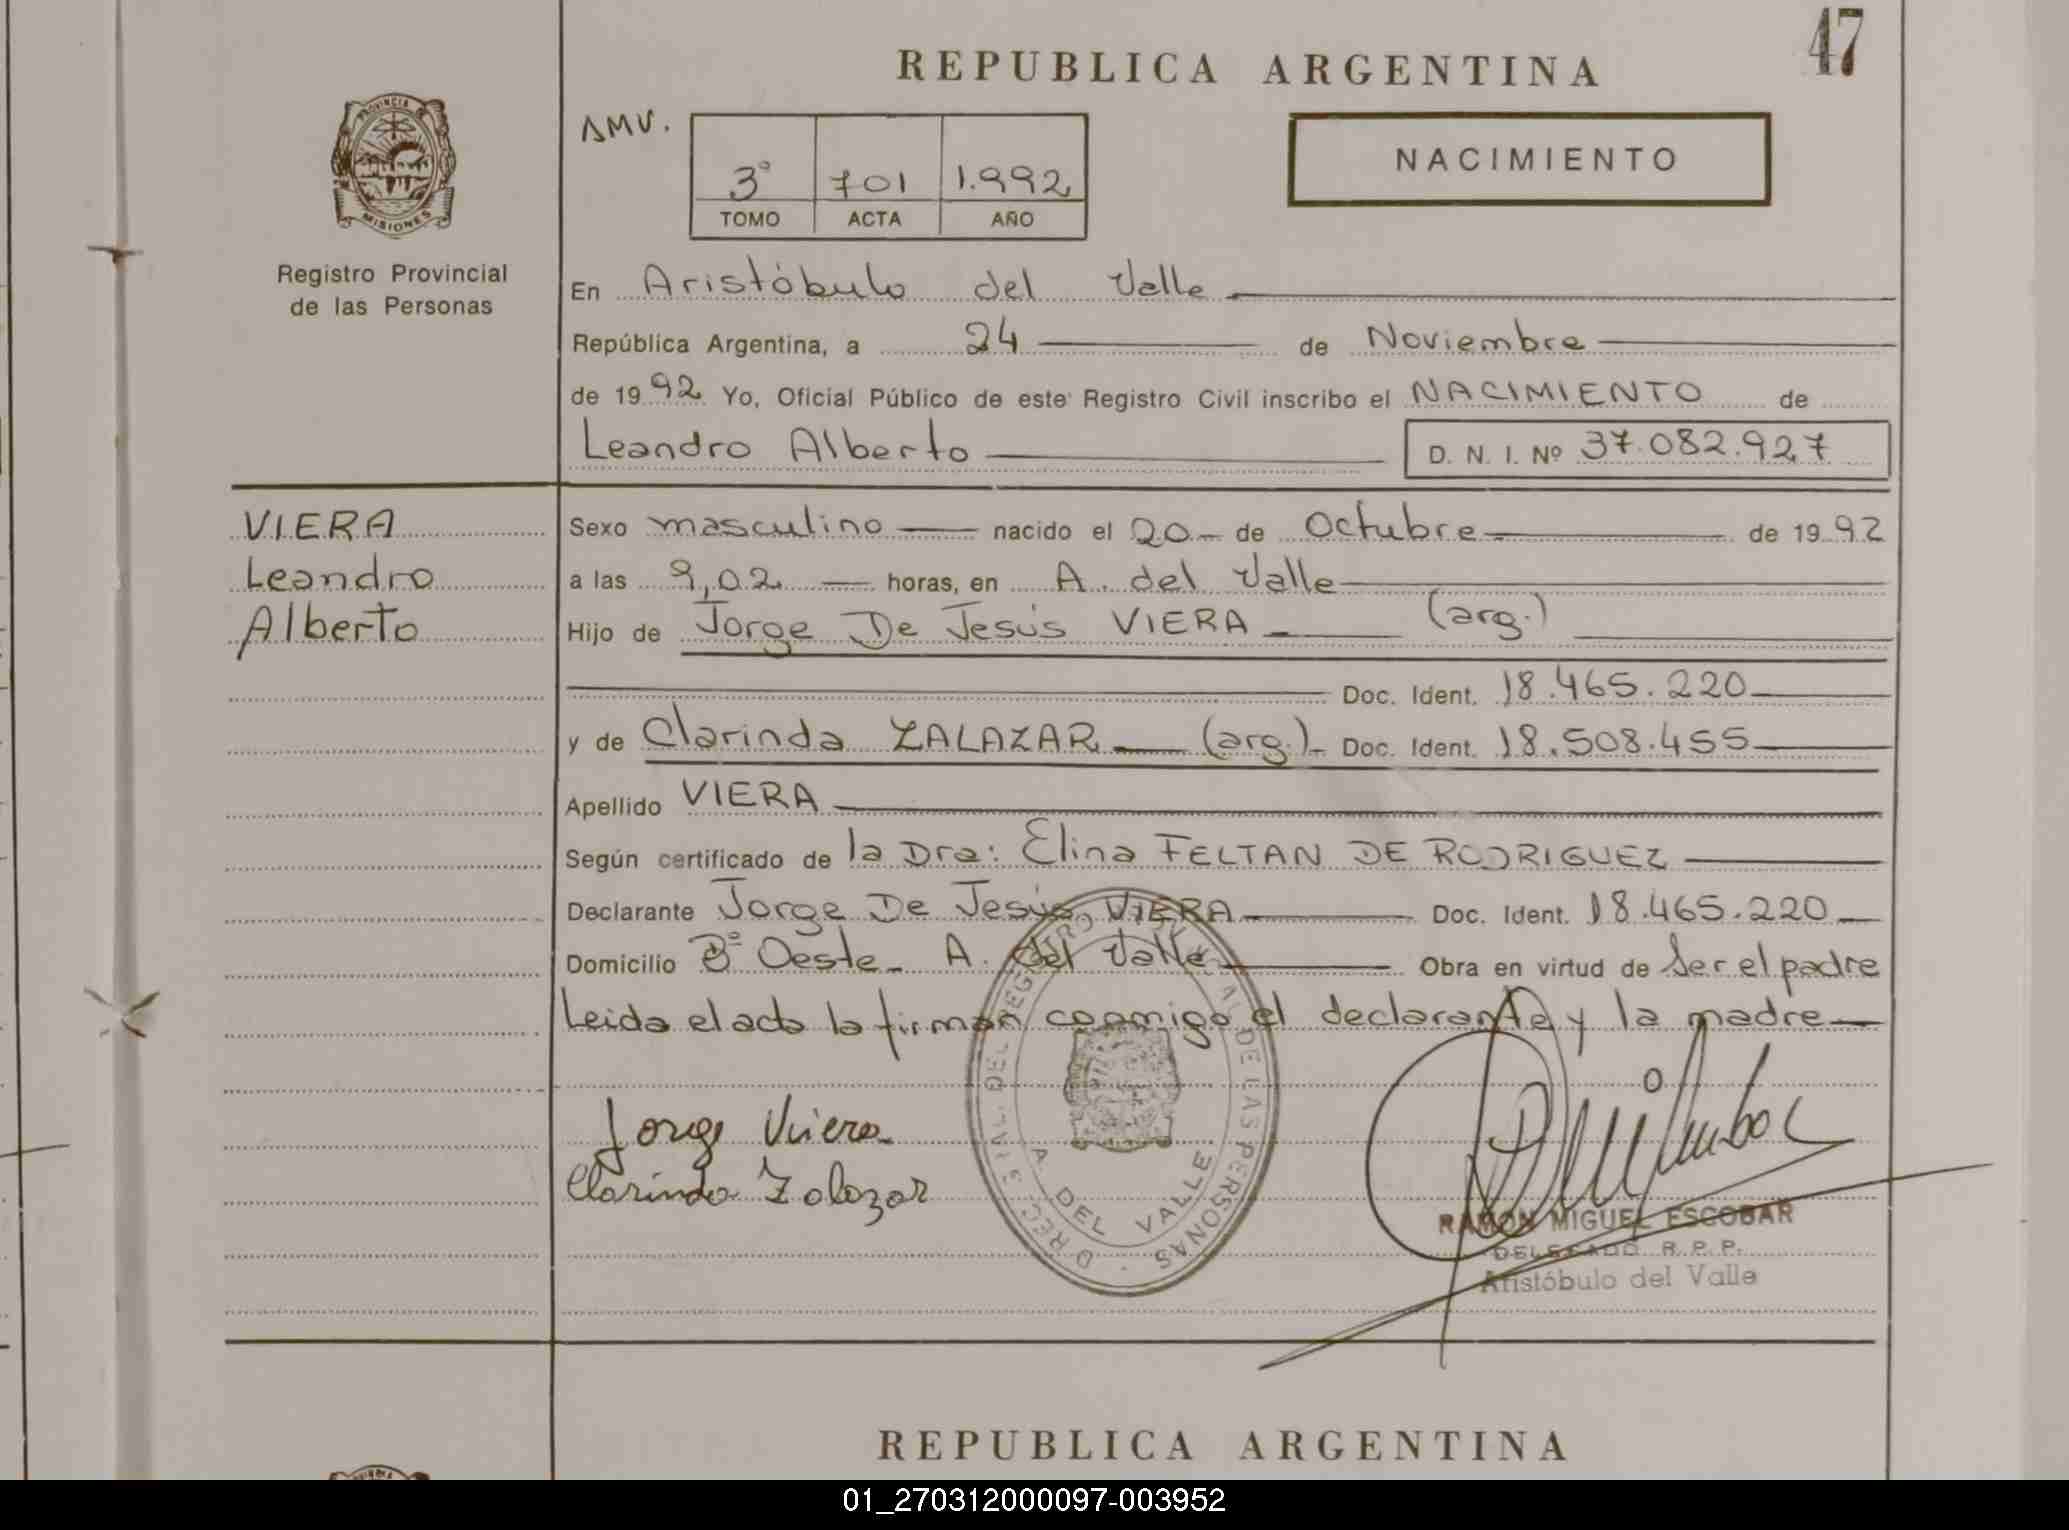 47
REPUBLICA ARGENTINA
AMV.
3° 701 1.992
TOMO ACTA AÑO
NACIMIENTO
PROVINCIA
MISIONES
Registro Provincial
de las Personas
En Aristóbulo del Valle
República Argentina, a 24 de Noviembre
de 1992 Yo, Oficial Público de este Registro Civil inscribo el NACIMIENTO de
Leandro Alberto D. N. I. Nº 37.082.927
VIERA
Leandro
Alberto
Sexo masculino nacido el 20 de Octubre de 1992
a las 9,02 horas, en A. del Valle
Hijo de Jorge De Jesús VIERA (arg.)
Doc. Ident. 18.465.220
y de Clarinda ZALAZAR (arg.) Doc. Ident. 18.508.455
Apellido VIERA
Según certificado de la Dra: Elina FELTAN DE RODRIGUEZ
Declarante Jorge De Jesús VIERA Doc. Ident. 18.465.220
Domicilio Bº Oeste A. del Valle Obra en virtud de Ser el padre
Leida el acta la firman conmigo el declarante y la madre
Jorge Viera
Clarinda Zalazar
DEL REGISTRO DE LAS PERSONAS
A. DEL VALLE
RAMON MIGUEL ESCOBAR
DELEGADO R. P. P.
Aristóbulo del Valle
REPUBLICA ARGENTINA
01_270312000097-003952